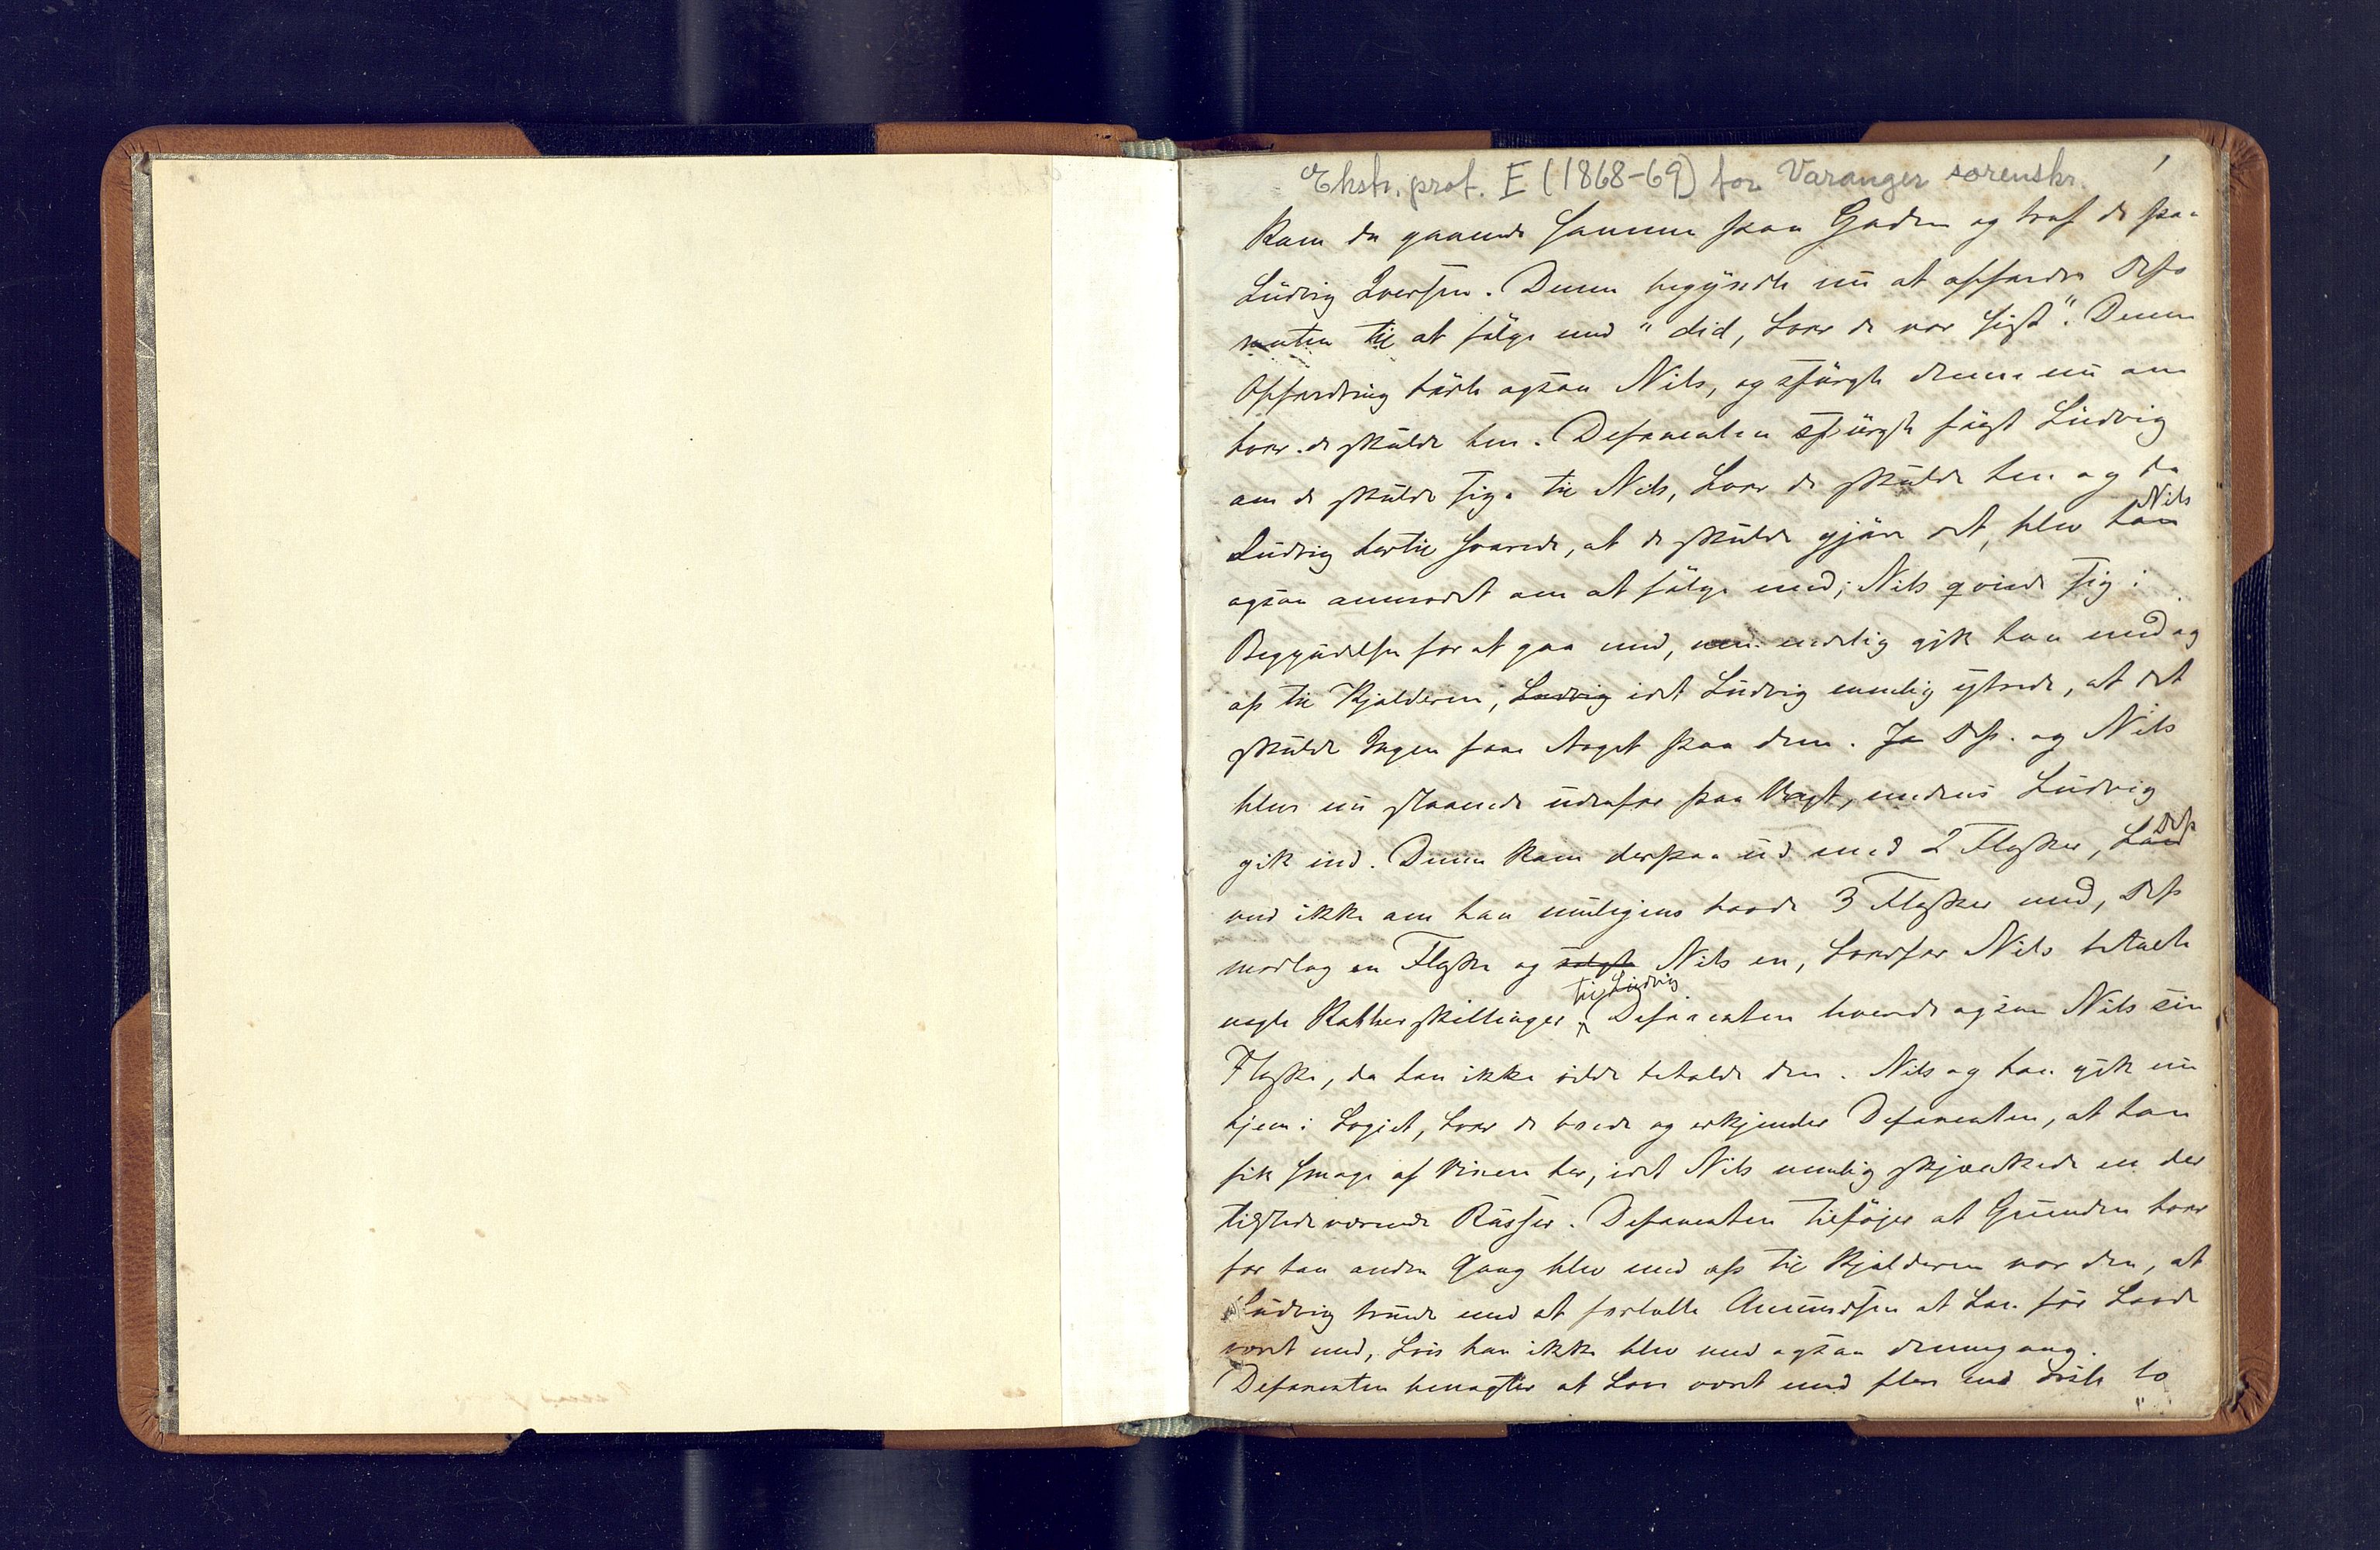 Ekstr. prot. E (1868-69) for Varanger sorenskr.
1
kom de gaaende sammen paa Gaden og traf de paa
Ludvig Iversen. Denne begyndte nu at opfordre Depo
nenten til at følge med "did, hvor de var sist". Denne
Opfordring hørte ogsaa Nils, og spurgte denne nu om
hvor de skulde hen. Deponenten spurgte først Ludvig
om de skulde sige til Nils, hvor de skulde hen og da
Ludvig hertil svarede, at de skulde gjøre det, blev han Nils
ogsaa anmodet om at følge med; Nils qviede sig i
Begyndelsen for at gaa med, men endelig gik han med og
op til Kjælderen, Ludvig idet Ludvig nemlig ytrede, at det
skulde Ingen faa Noget paa dem. Ja Dep. og Nils
blev nu staaende udenfor paa Vagt, medens Ludvig
gik ind. Denne kom derpaa ud med 2 Flasker, Dep
ved ikke om han muligens havde 3 Flasker med, Dep
modtog en Flaske og solgte Nils en, hvorfor Nils betalte
nogle Kobberskillinger til Ludvig. Deponenten leverede ogsaa Nils sin
Flaske, da han ikke vilde beholde den. Nils og han gik nu
hjem i Logiet, hvor de boede og erkjender Deponenten, at han
fik smage af Vinen her, idet Nils nemlig skjænkede en der
tilstedeværende Russer. Deponenten tilføjer at Grunden hvor
for han anden Gang blev med op til Kjælderen var den, at
Ludvig truede med at fortælle Amundsen at han før havde
været med, hvis han ikke blev med ogsaa dennegang.
Deponenten benægter at have været med flere end disse to